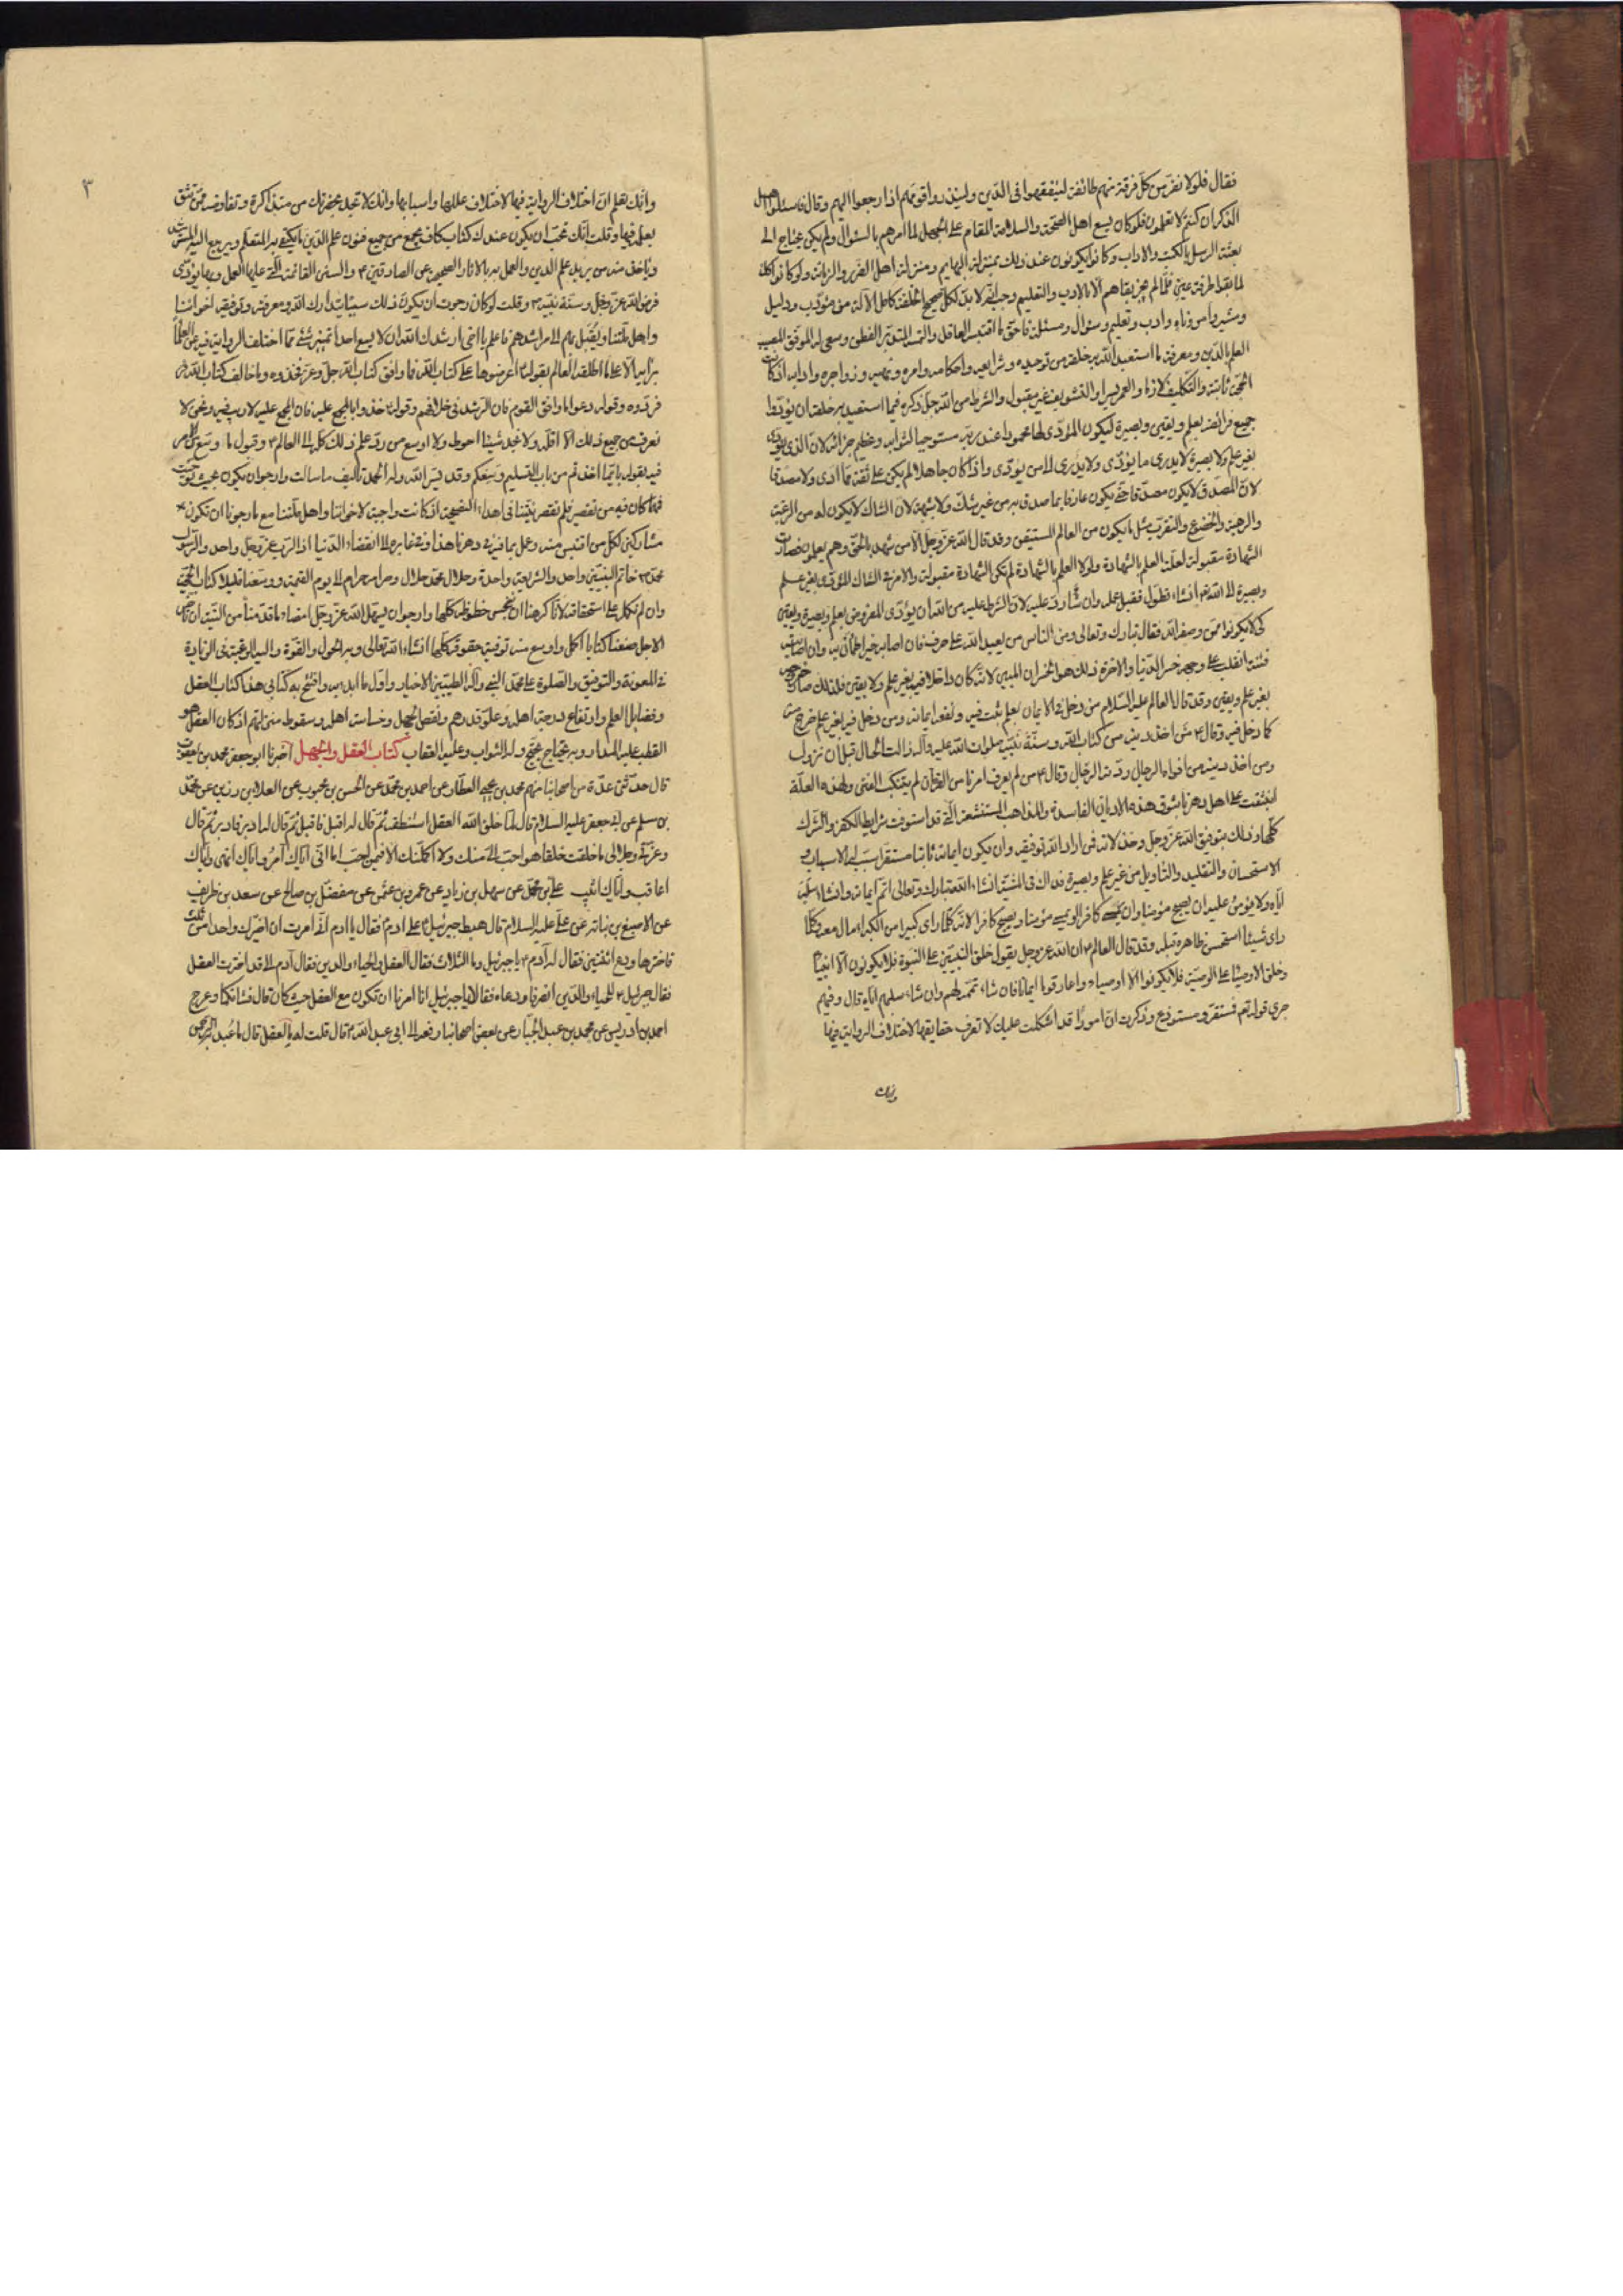 فقال فلولا نفر من كل فرقة منهم طائفة ليتفقهوا فى الدين ولينذروا قومهم اذا رجعوا اليهم وقال فاسئلوا اهل
الذكر ان كنتم لا تعلمون فلو كان يسع اهل الصحة والسلامة المقام على الجهل لما امرهم بالسؤال ولم يكن يحتاج الى
بعثة الرسل بالكتب والاداب وكانوا يكونون عند ذلك بمنزلة البهايم ومنزلة اهل الضرر والزمانة ولو كانوا كذلك
لما بقوا طرفة عين فلما لم يجز بقاهم الا بالادب والتعليم وجب انه لا بد لكل صحيح الخلقة كامل الالة من مؤدب ودليل
ومشير وآمر وناه وادب وتعليم وسؤال ومسئلة فاحق ما اقتبسه العاقل والتمسه المتدبر الفطن وسعى له الموفق المصيب
العلم بالدين ومعرفة ما استعبد الله به خلقه من توحيده وشرايعه واحكامه وامره ونهيه وزواجره وادابه اذ كانت
الحجة ثابتة والتكليف لازما والعمر يسيرا والتسويف غير مقبول والشرط من الله جل ذكره فيما استعبد به خلقه ان يؤدوا
جميع فرائضه بعلم ويقين وبصيرة ليكون المؤدى لها محمودا عند ربه مستوجبا لثوابه وعظيم جزائه لان الذى يؤدى
بغير علم ولا بصيرة لا يدرى ما يؤدى ولا يدرى الى من يؤدى واذا كان جاهلا لم يكن على ثقة مما ادى ولا مصدقا
لان المصدق لا يكون مصدقا حتى يكون عارفا بما صدق به من غير شك ولا شبهة لان الشاك لا يكون له من الرغبة
والرهبة والخضوع والتقرب مثل ما يكون من العالم المستيقن وقد قال الله عز وجل الا من شهد بالحق وهم يعلمون فصارت
الشهادة مقبولة لعلة العلم بالشهادة ولولا العلم بالشهادة لم تكن الشهادة مقبولة والامر فى الشاك المؤدى بغير علم
وبصيرة الى الله انشاء تطول فقبل عمله وان شاء رد عليه لان الشرط عليه من الله ان يؤدى المفروض بعلم وبصيرة ويقين
كى لا يكونوا ممن وصفه الله فقال تبارك وتعالى ومن الناس من يعبد الله على حرف فان اصابه خير اطمأن به وان اصابته
فتنة انقلب على وجهه خسر الدنيا والاخرة ذلك هو الخسران المبين لانه كان داخلا فيه بغير علم ولا يقين فلذلك صار خروجه
بغير علم ويقين وقد قال العالم عليه السلام من دخل فى الايمان بعلم ثبت فيه ونفعه ايمانه ومن دخل فيه بغير علم خرج منه
كما دخل فيه وقال ع من اخذ دينه من كتاب الله وسنة نبيه صلوات الله عليه وآله زالت الجبال قبل ان يزول
ومن اخذ دينه من افواه الرجال ردته الرجال وقال ع من لم يعرف امرنا من القرآن لم يتنكب الفتن ولهذه العلة
انبثقت على اهل دهرنا بثوق هذه الاديان الفاسدة والمذاهب المستشنعة التى قد استوفت شرايط الكفر والشرك
كلها وذلك بتوفيق الله عز وجل وخذلانه فمن اراد الله توفيقه وان يكون ايمانه ثابتا مستقرا سبب له الاسباب
الاستحسان والتقليد والتأويل من غير علم وبصيرة فذاك فى المشية انشاء الله تبارك وتعالى اتم ايمانه وانشاء سلبه
اياه ولا يؤمن عليه ان يصبح مؤمنا وان يمسى كافرا او يمسى مؤمنا ويصبح كافرا لانه كلما راى كبيرا من الكبراء مال معه وكلما
راى شيئا استحسن ظاهره قبله وقد قال العالم ع ان الله عز وجل يقول خلق النبيين على النبوة فلا يكونون الا انبياء
وخلق الاوصيا على الوصية فلا يكونوا الا اوصياء واعار قوما ايمانا فان شاء تممه لهم وان شاء سلبهم اياه قال وفيهم
جرى قوله تع فمستقر ومستودع وذكرت ان امورا قد اشكلت عليك لا تعرف حقايقها لاختلاف الرواية فيها
وانك
٣
وانك تعلم ان اختلاف الرواية فيها لاختلاف عللها واسبابها وانك لا تجد بحضرتك من تذاكره وتفاوضه ممن تثق
بعلمه فيها وقلت انك تحب ان يكون عندك كتاب كاف يجمع من جميع فنون علم الدين ما يكتفى به المتعلم ويرجع اليه المسترشد
وياخذ منه من يريد علم الدين والعمل به بالاثار الصحيحة عن الصادقين ع والسنن القائمة التى عليها العمل وبها يؤدى
فرض الله عز وجل وسنة نبيه ص وقلت لو كان رجوت ان يكون ذلك سببا يتدارك الله بمعرفته وتوفيقه اخواننا
واهل ملتنا ويقبل بهم الى مراشدهم فاعلم يا اخى ارشدك الله ان لا يسع احدا تمييز شئ مما اختلف الرواية فيه عن العلماء
برأيه الا على ما اطلقه العالم بقوله ع اعرضوها على كتاب الله فما وافق كتاب الله جل وعز فخذوه وما خالف كتاب الله
فردوه وقوله دعوا ما وافق القوم فان الرشد فى خلافهم وقوله ع خذوا بالمجمع عليه فان المجمع عليه لا ريب فيه ونحن لا
نعرف من جميع ذلك الا اقله ولا نجد شيئا احوط ولا اوسع من رد علم ذلك كله الى العالم ع وقبول ما وسع من الامر
فيه بقوله بايما اخذتم من باب التسليم وسعكم وقد يسر الله وله الحمد تأليف ما سالت وارجو ان يكون بحيث توخيت
فمهما كان فيه من تقصير فلم تقصر نيتنا فى اهداء النصيحة اذ كانت واجبة لاخواننا واهل ملتنا مع ما رجونا ان نكون
مشاركين لكل من اقتبس منه وعمل بما فيه فى دهرنا هذا وفى غابره الى انقضاء الدنيا اذ الرب عز وجل واحد والرسول
محمد ص خاتم النبيين واحد والشريعة واحدة وحلال محمد حلال وحرامه حرام الى يوم القيمة ووسعنا قليلا كتاب الحجة
وان لم نكمله على استحقاقه لانا كرهنا ان نبخس حظوظه كلها وارجو ان يسهل الله عز وجل امضاء ما قدمنا من النية ان تأخر
الاجل صنعنا كتابا اكمل واوسع منه نوفيه حقوقه كلها انشاء الله تعالى وبه الحول والقوة واليه الرغبة فى الزيادة
فى المعونة والتوفيق والصلوة على محمد النبى وآله الطيبين الاخيار واول ما ابدء به وافتتح به كتابى هذا كتاب العقل
وفضايل العلم وارتفاع درجة اهله وعلو قدرهم ونقص الجهل وخساسة اهله وسقوط منزلتهم اذ كان العقل هو
القطب عليه المدار وبه يحتج وله الثواب وعليه العقاب كتاب العقل والجهل اخبرنا ابو جعفر محمد بن يعقوب
قال حدثنى عدة من اصحابنا منهم محمد بن يحيى العطار عن احمد بن محمد عن الحسن بن محبوب عن العلا بن رزين عن محمد
بن مسلم عن ابى جعفر عليه السلام قال لما خلق الله العقل استنطقه ثم قال له اقبل فاقبل ثم قال له ادبر فادبر ثم قال
وعزتى وجلالى ما خلقت خلقا هو احب الى منك ولا اكملتك الا فيمن احب اما انى اياك آمر واياك انهى واياك
اعاقب واياك اثيب على بن محمد عن سهل بن زياد عن عمرو بن عثمن عن مفضل بن صالح عن سعد بن طريف
عن الاصبغ بن نباتة عن على عليه السلام قال هبط جبرئيل ع على ادم ع فقال يا ادم انى امرت ان اخيرك واحدة من ثلث
فاخترها ودع اثنتين فقال له آدم ع يا جبرئيل وما الثلاث فقال العقل والحياء والدين فقال آدم انى قد اخترت العقل
فقال جبرئيل ع للحياء والدين انصرفا ودعاه فقالا يا جبرئيل انا امرنا ان نكون مع العقل حيث كان قال فشانكما وعرج
احمد بن ادريس عن محمد بن عبد الجبار عن بعض اصحابنا رفعه الى ابى عبد الله ع قال قلت له ما العقل قال ما عبد به الرحمن